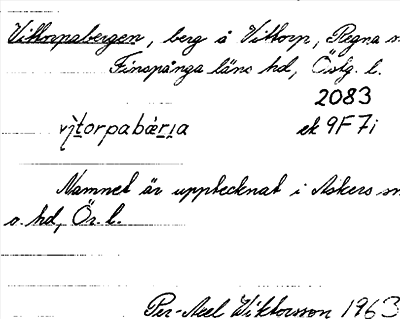 Viktorpabergen, berg å Viktorp, Regna
Finspånga läns hd, Östg. l.
2083
vi̱torpabæria ek 9F7i
Namnet är upptecknat i Askers
o. hd, Ör. l.
Per-Axel Wiktorsson 1963